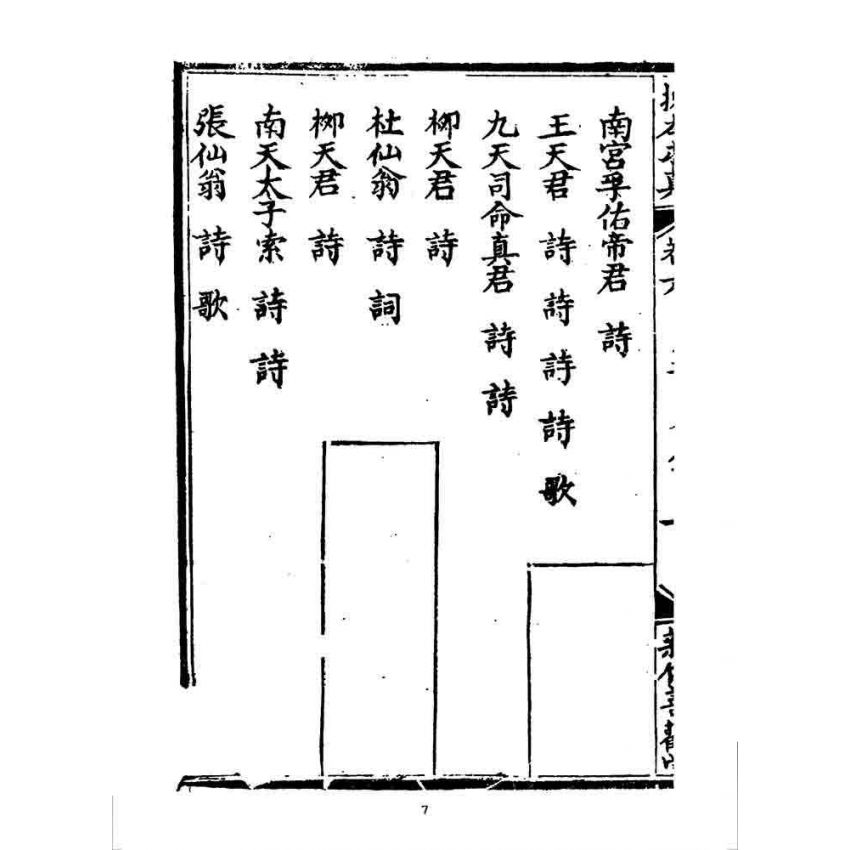 南宮孚佑帝君 詩
王天君 詩 詩 詩 詩 歌
九天司命真君 詩 詩
柳天君 詩
杜仙翁 詩 詞
柳天君 詩
南天太子索 詩 詩
張仙翁 詩 歌
7